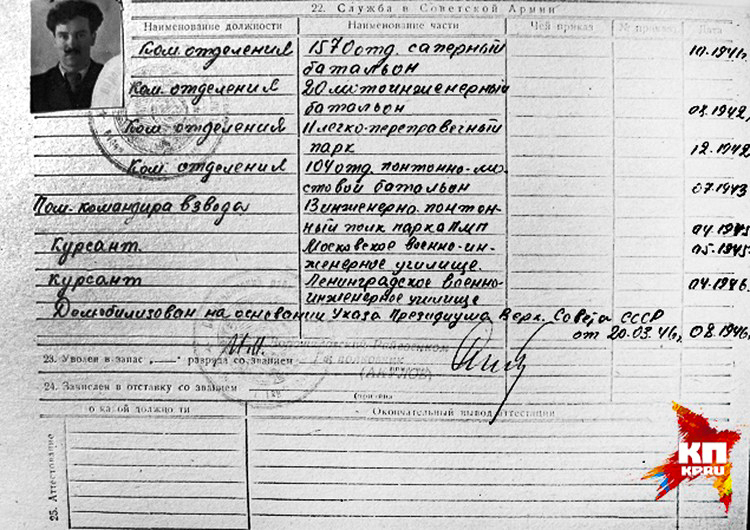 22. Служба в Советской Армии
Наименование должности Наименование части Чей приказ № приказа Дата
Ком. отделения 1570 отд. саперный 10.1941г.
батальон
Ком. отделения 20 мотоинженерный
батальон 08.1942,
Ком. отделения 11 легко-переправочный
парк 12.1942
Ком. отделения 104 отд. понтонно-мо-
стовой батальон 07.1943
Пом. командира взвода 13 инженерно-понтон-
ный полк парка НМП 04.1945
Курсант Московское военно-ин- 05.1945
женерное училище.
Курсант Ленинградское военно- 04.1946
инженерное училище
Демобилизован на основании Указа Президиума Верх. Совета СССР
от 20.03.46г, 08.1946,
23. Уволен в запас „ “ разряда со званием
Райвоенком
полковник
24. Зачислен в отставку со званием
о какой должности Окончательный вывод аттестации
25. Аттестование
КП
KP.RU